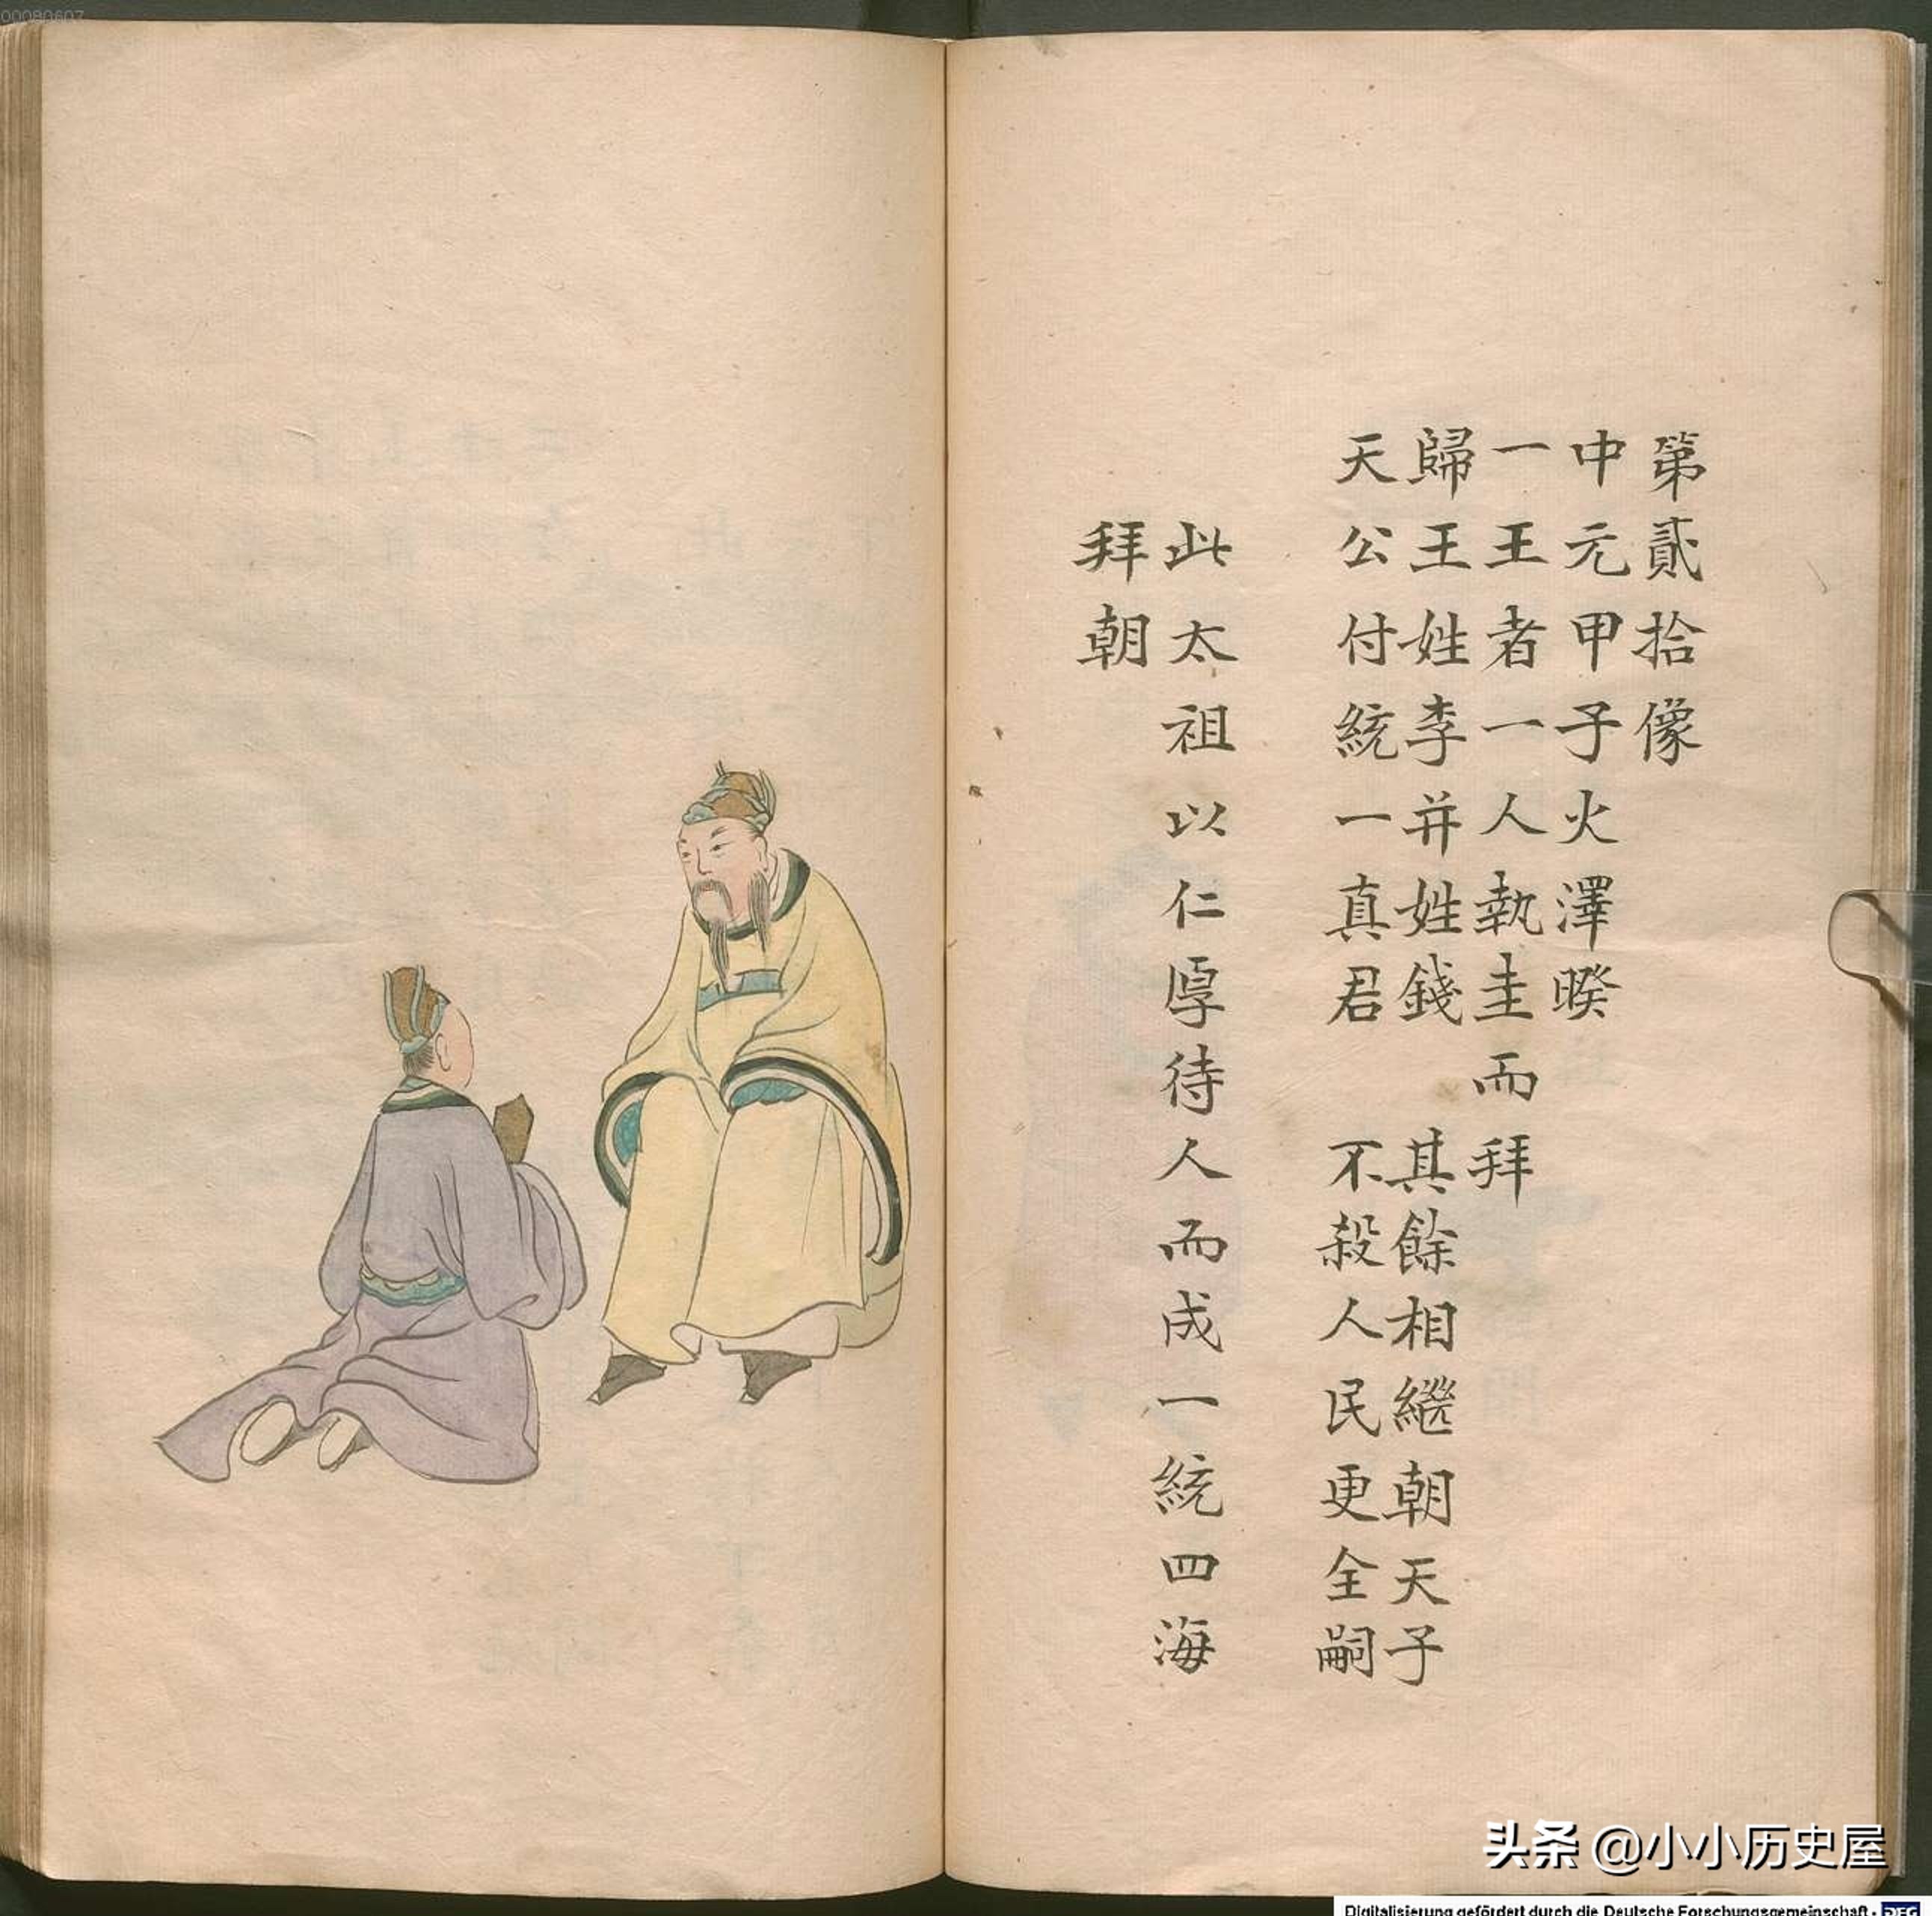 第貳拾像
中元甲子火澤暌
一王者一人執圭而拜
歸王姓李并姓錢 其餘相繼朝天子
天公付統一真君 不殺人民更全嗣
此太祖以仁厚待人而成一統四海
拜朝
00080607
头条 @小小历史屋
Digitalisierung gefördert durch die Deutsche Forschungsgemeinschaft - DFG